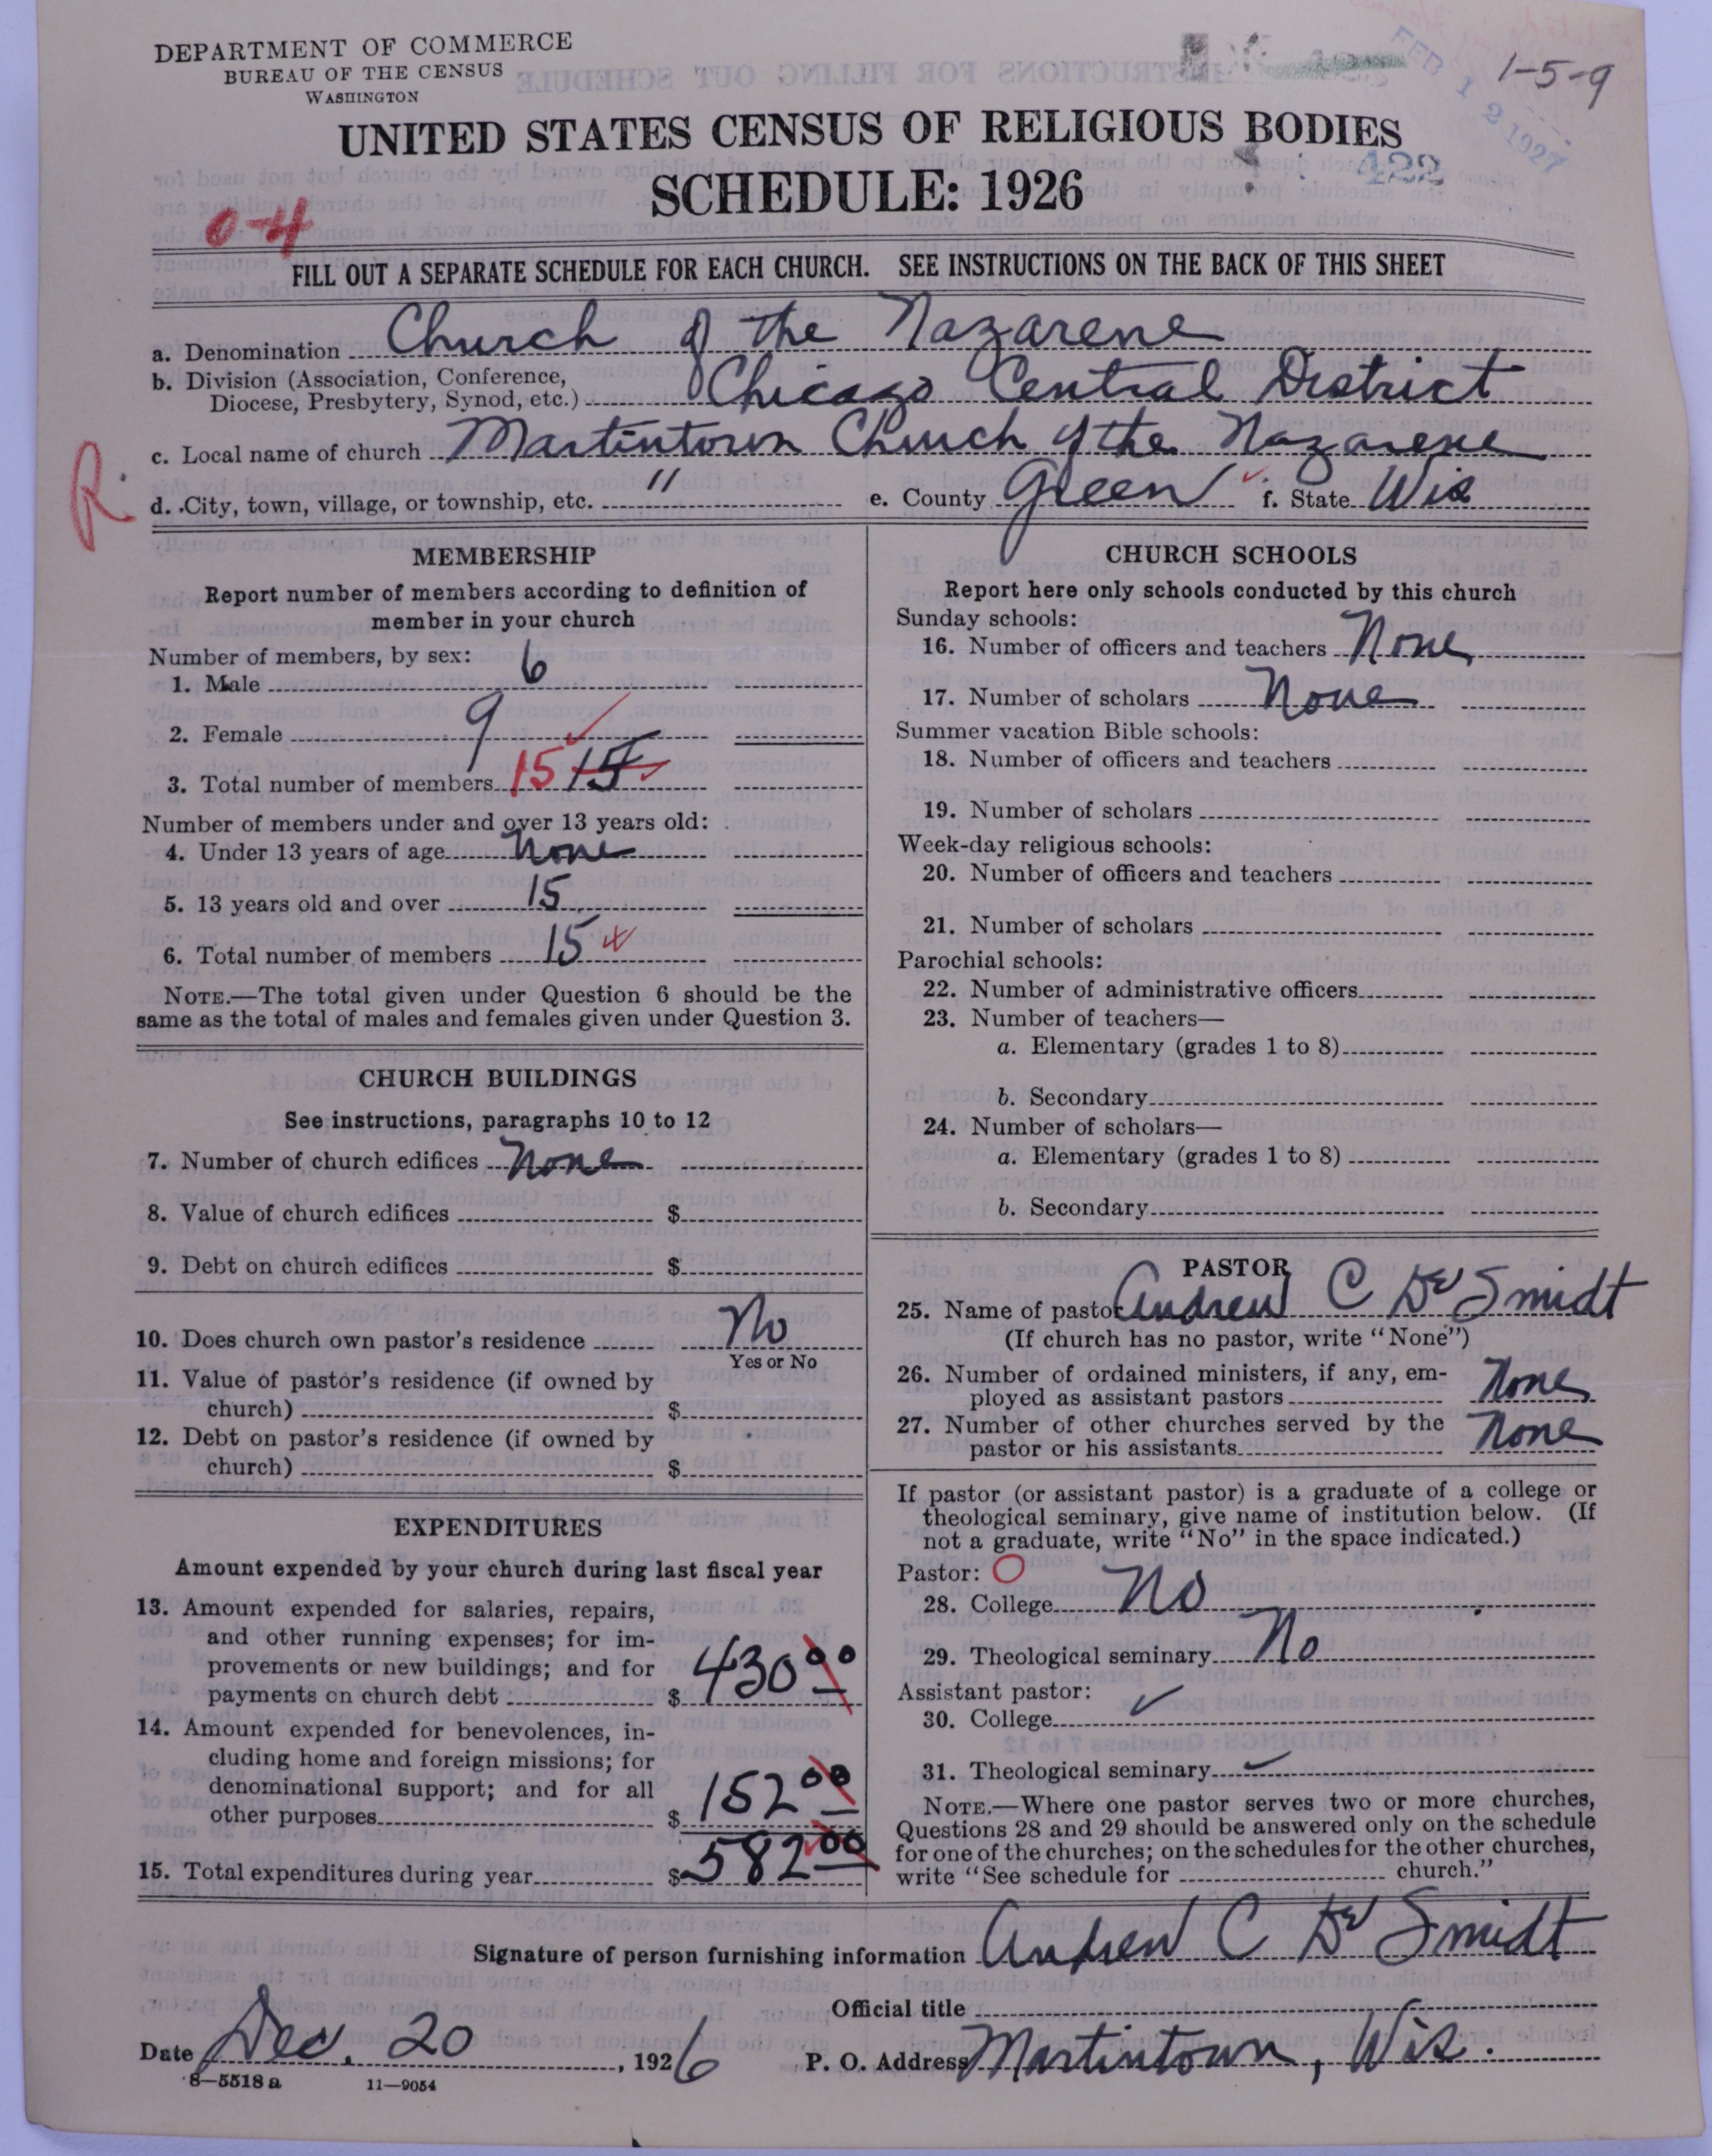 DEPARTMENT OF COMMERCE
BUREAU OF THE CENSUS
WASHINGTON
FEB 12 1927
1-5-9
UNITED STATES CENSUS OF RELIGIOUS BODIES
422
SCHEDULE: 1926
0-4
FILL OUT A SEPARATE SCHEDULE FOR EACH CHURCH. SEE INSTRUCTIONS ON THE BACK OF THIS SHEET
a. Denomination Church of the Nazarene
b. Division (Association, Conference, Diocese, Presbytery, Synod, etc.) Chicago Central District
c. Local name of church Martintown Church of the Nazarene
R.
d. City, town, village, or township, etc. " e. County Green f. State Wis
MEMBERSHIP
Report number of members according to definition of
member in your church
Number of members, by sex:
1. Male 6
2. Female 9
3. Total number of members 15 15
Number of members under and over 13 years old:
4. Under 13 years of age None
5. 13 years old and over 15
6. Total number of members 15
NOTE.—The total given under Question 6 should be the
same as the total of males and females given under Question 3.
CHURCH BUILDINGS
See instructions, paragraphs 10 to 12
7. Number of church edifices None
8. Value of church edifices $
9. Debt on church edifices $
10. Does church own pastor's residence No
Yes or No
11. Value of pastor's residence (if owned by
church) $
12. Debt on pastor's residence (if owned by
church) $
EXPENDITURES
Amount expended by your church during last fiscal year
13. Amount expended for salaries, repairs,
and other running expenses; for im-
provements or new buildings; and for
payments on church debt $430 00
14. Amount expended for benevolences, in-
cluding home and foreign missions; for
denominational support; and for all
other purposes $152 00
15. Total expenditures during year $582 00
CHURCH SCHOOLS
Report here only schools conducted by this church
Sunday schools:
16. Number of officers and teachers None
17. Number of scholars None
Summer vacation Bible schools:
18. Number of officers and teachers
19. Number of scholars
Week-day religious schools:
20. Number of officers and teachers
21. Number of scholars
Parochial schools:
22. Number of administrative officers
23. Number of teachers—
a. Elementary (grades 1 to 8)
b. Secondary
24. Number of scholars—
a. Elementary (grades 1 to 8)
b. Secondary
PASTOR
25. Name of pastor Andrew C De Smidt
(If church has no pastor, write "None")
26. Number of ordained ministers, if any, em-
ployed as assistant pastors None
27. Number of other churches served by the
pastor or his assistants None
If pastor (or assistant pastor) is a graduate of a college or
theological seminary, give name of institution below. (If
not a graduate, write "No" in the space indicated.)
Pastor: O
28. College No
29. Theological seminary No
Assistant pastor:
30. College ✓
31. Theological seminary ✓
NOTE.—Where one pastor serves two or more churches,
Questions 28 and 29 should be answered only on the schedule
for one of the churches; on the schedules for the other churches,
write "See schedule for church."
Signature of person furnishing information Andrew C De Smidt
Official title
Date Dec. 20, 1926 P. O. Address Martintown, Wis.
8—5518 a 11—9054